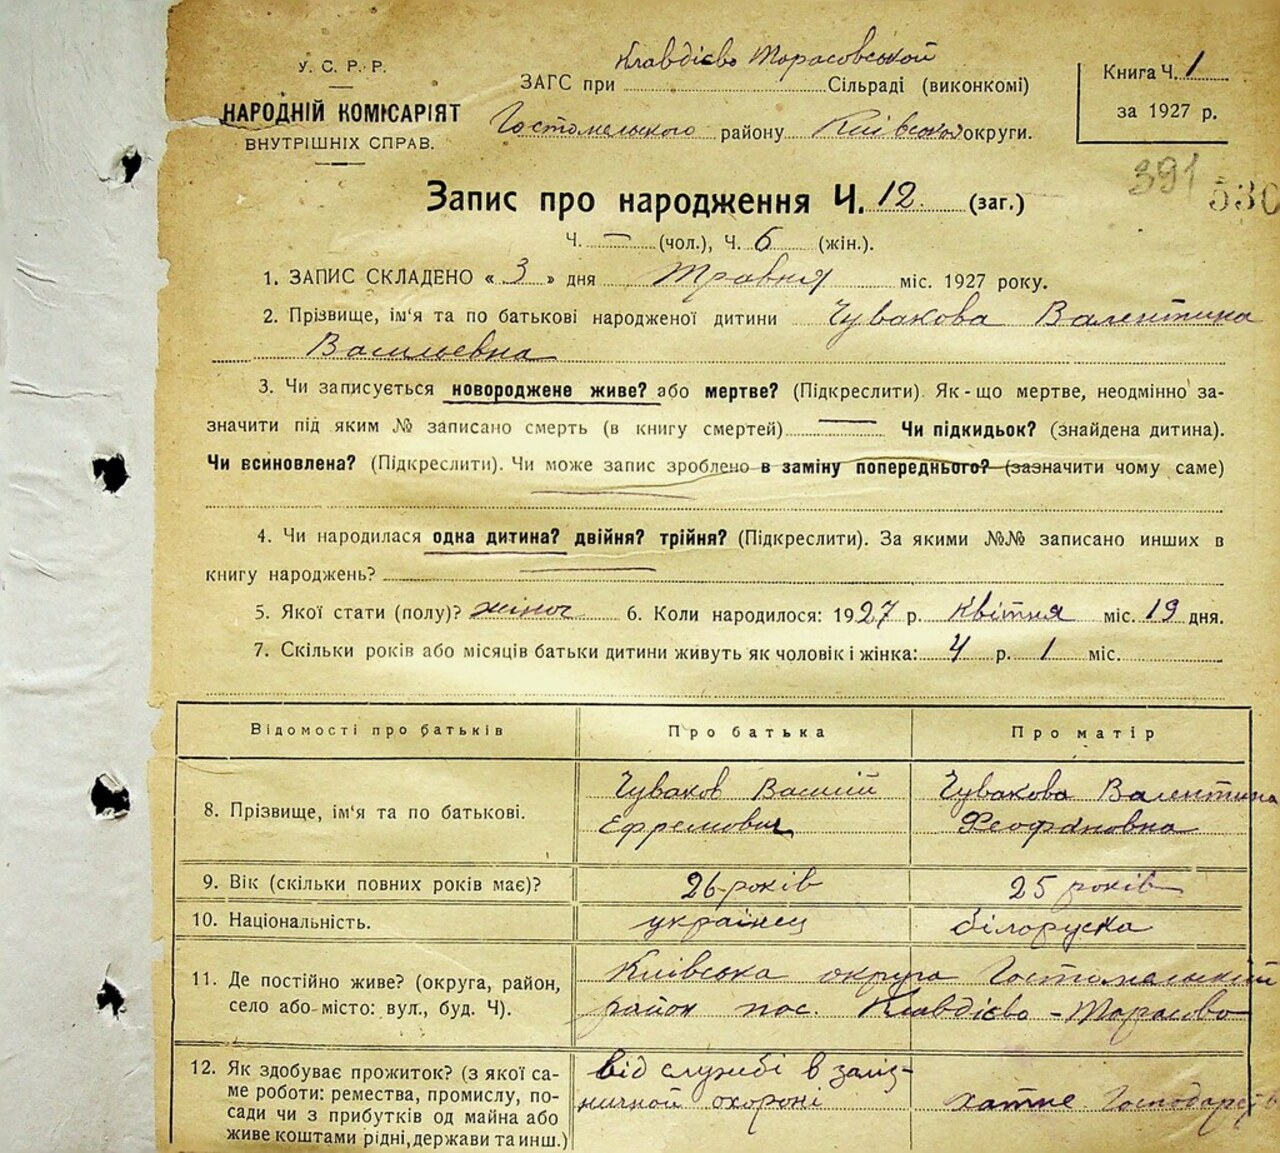 У. С. Р. Р.
НАРОДНІЙ КОМІСАРІЯТ
ВНУТРІШНІХ СПРАВ.
Клавдієво Тарасовській
ЗАГС при Сільраді (виконкомі)
Гостомельского району Київської округи.
Книга Ч. 1
за 1927 р.
391 530
Запис про народження Ч. 12. (заг.)
Ч. — (чол.), Ч. 6 (жін.).
1. ЗАПИС СКЛАДЕНО « 3 » дня Травня міс. 1927 року.
2. Прізвище, ім'я та по батькові народженої дитини Чувакова Валентина
Васильевна
3. Чи записується новороджене живе? або мертве? (Підкреслити). Як-що мертве, неодмінно за-
значити під яким № записано смерть (в книгу смертей) — Чи підкидьок? (знайдена дитина).
Чи всиновлена? (Підкреслити). Чи може запис зроблено в заміну попереднього? (зазначити чому саме)
4. Чи народилася одна дитина? двійня? трійня? (Підкреслити). За якими №№ записано инших в
книгу народжень?
5. Якої стати (полу)? жіноч 6. Коли народилося: 1927 р. Квітня міс. 19 дня.
7. Скільки років або місяців батьки дитини живуть як чоловік і жінка: 4 р. 1 міс.
Відомості про батьків Про батька Про матір
8. Прізвище, ім'я та по батькові. Чуваков Василій Ефремович Чувакова Валентина Феофановна
9. Вік (скільки повних років має)? 26 років 25 років
10. Національність. українец білоруска
11. Де постійно живе? (округа, район, Київська округа Гостомельскій
село або місто: вул., буд. Ч). район пос. Клавдієво-Тарасово
12. Як здобуває прожиток? (з якої са- від службі в заліз-
ме роботи: ремества, промислу, по- ничной охороні хатне Господарств
сади чи з прибутків од майна або
живе коштами рідні, держави та инш.)